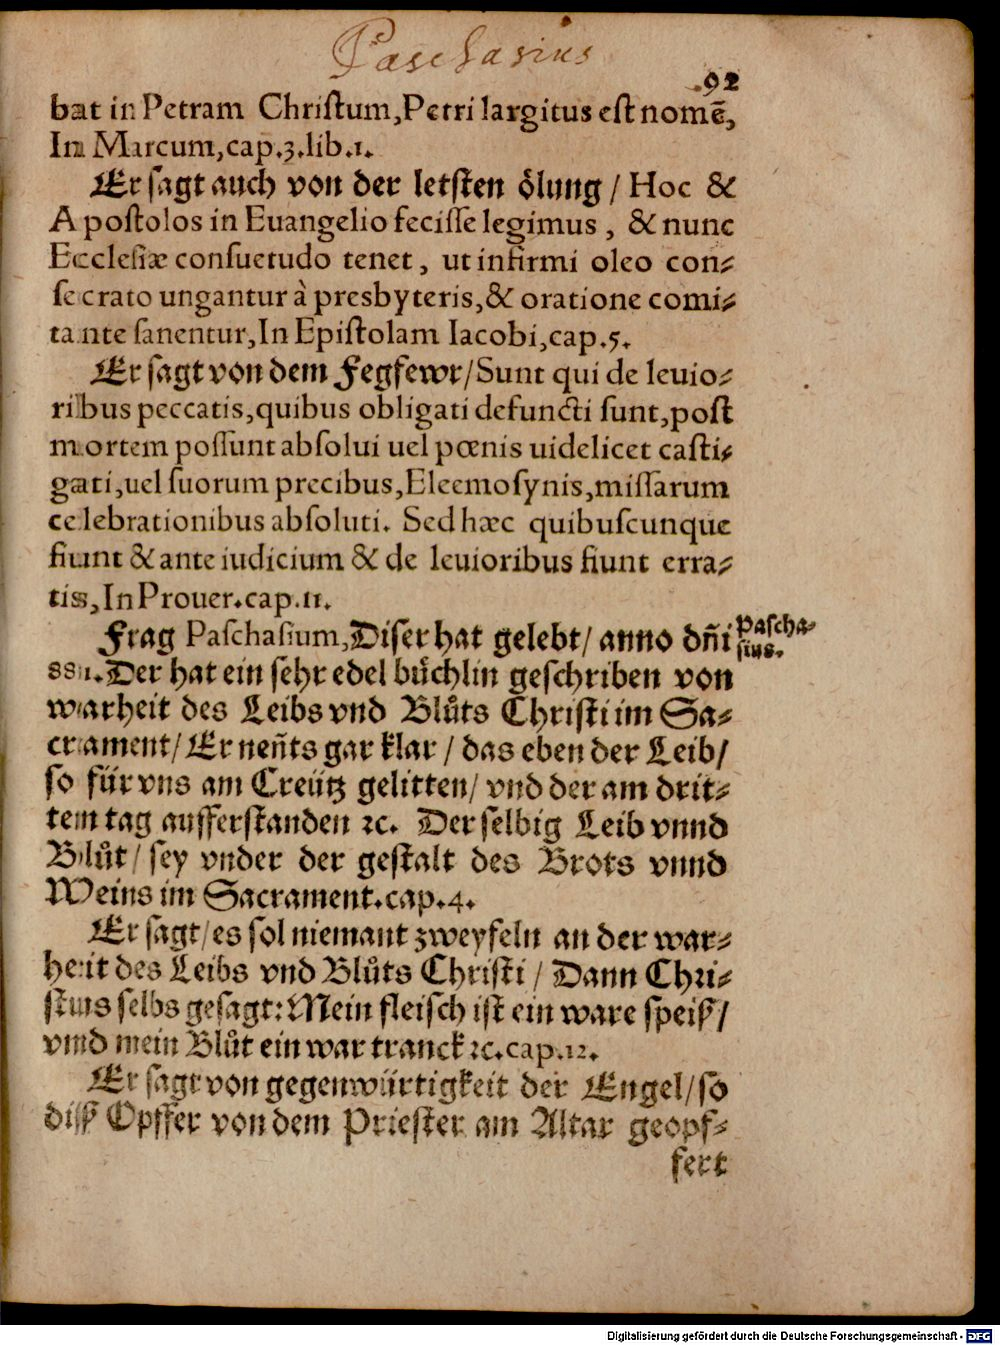 Paschasius
92
bat in Petram Christum, Petri largitus est nomē,
In Marcum, cap.3.lib.1.
Er sagt auch von der letsten ölung / Hoc &
Apostolos in Euangelio fecisse legimus, & nunc
Ecclesiæ consuetudo tenet, ut infirmi oleo con⸗
secrato ungantur à presbyteris, & oratione comi⸗
tante sanentur, In Epistolam Iacobi, cap.5.
Er sagt von dem Fegfewr / Sunt qui de leuio⸗
ribus peccatis, quibus obligati defuncti sunt, post
mortem possunt absolui uel pœnis uidelicet casti⸗
gati, uel suorum precibus, Eleemosynis, missarum
celebrationibus absoluti. Sed hæc quibuscunque
fiunt & ante iudicium & de leuioribus fiunt erra⸗
tis, In Prouer. cap.11.
Frag Paschasium, Diser hat gelebt / anno dñi
Pascha⸗
sius.
881. Der hat ein sehr edel bůchlin geschriben von
warheit des Leibs vnd Blůts Christi im Sa⸗
crament / Er neñts gar klar / das eben der Leib /
so für vns am Creütz gelitten / vnd der am drit⸗
tem tag aufferstanden ꝛc. Der selbig Leib vnnd
Blůt / sey vnder der gestalt des Brots vnnd
Weins im Sacrament. cap.4.
Er sagt / es sol niemant zweyfeln an der war⸗
heit des Leibs vnd Blůts Christi / Dann Chri⸗
stus selbs gesagt: Mein fleisch ist ein ware speiß /
vnd mein Blůt ein war tranck ꝛc. cap.12.
Er sagt von gegenwürtigkeit der Engel / so
diß Opffer von dem Priester am Altar geopf⸗
fert
Digitalisierung gefördert durch die Deutsche Forschungsgemeinschaft - DFG